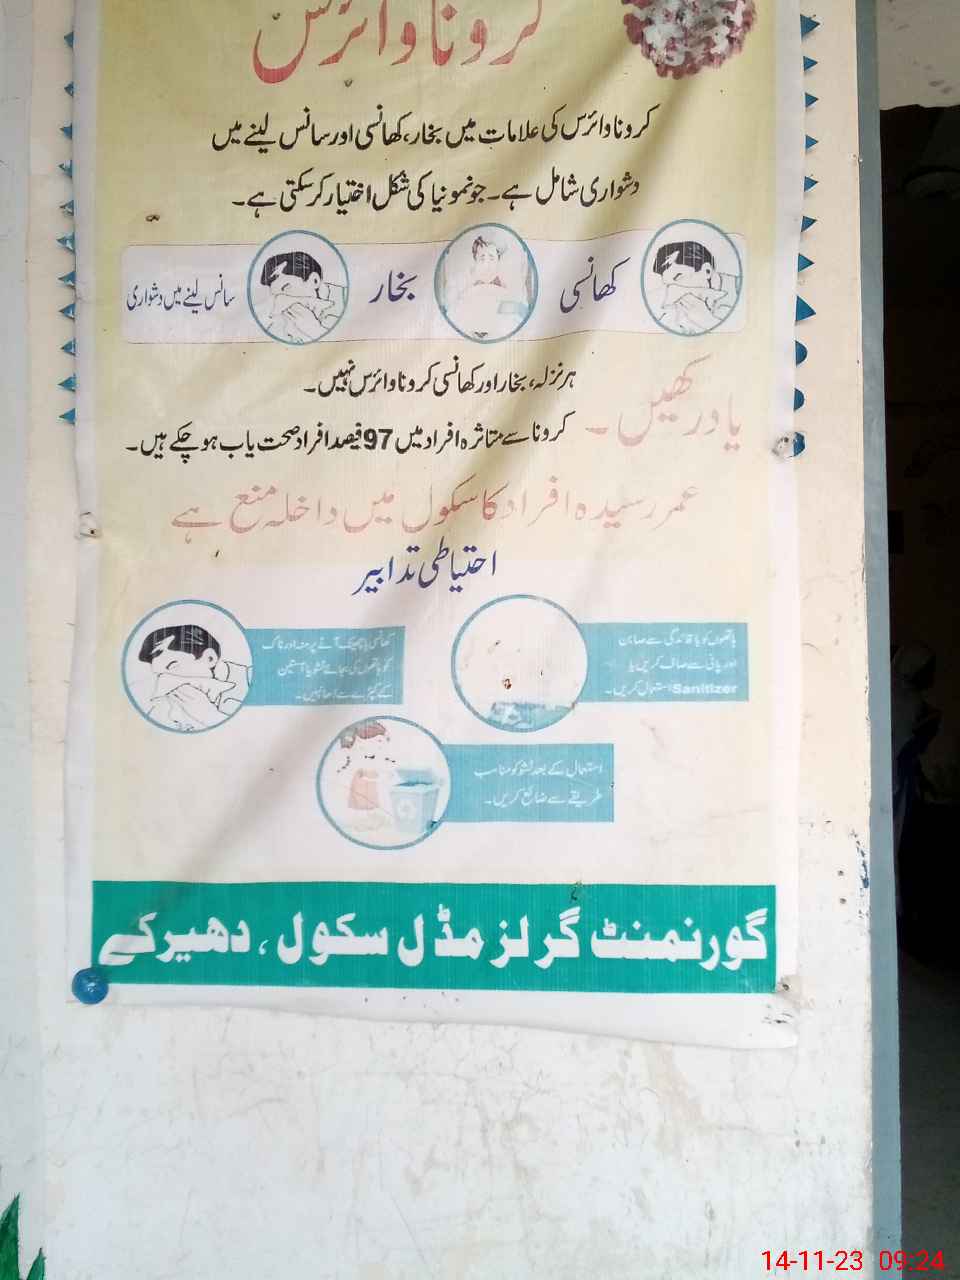 کرونا وائرس
کرونا وائرس کی علامات میں بخار، کھانسی اور سانس لینے میں
دشواری شامل ہے۔ جو نمونیا کی شکل اختیار کر سکتی ہے۔
کھانسی
بخار
سانس لینے میں دشواری
یاد رکھیں۔
ہر نزلہ، بخار اور کھانسی کرونا وائرس نہیں۔
کرونا سے متاثرہ افراد میں 97 فیصد افراد صحت یاب ہو چکے ہیں۔
عمر رسیدہ افراد کا سکول میں داخلہ منع ہے
احتیاطی تدابیر
ہاتھوں کو باقائدگی سے صابن
اور پانی سے صاف کریں یا
Sanitizer استعمال کریں۔
کھانسی یا چھینک آنے پر منہ اور ناک
کو ہاتھوں کی بجائے ٹشو یا آستین
کے کپڑے سے ڈھانپیں۔
استعمال کے بعد ٹشو کو مناسب
طریقے سے ضائع کریں۔
گورنمنٹ گرلز مڈل سکول، دھیرکے
14-11-23 09:24